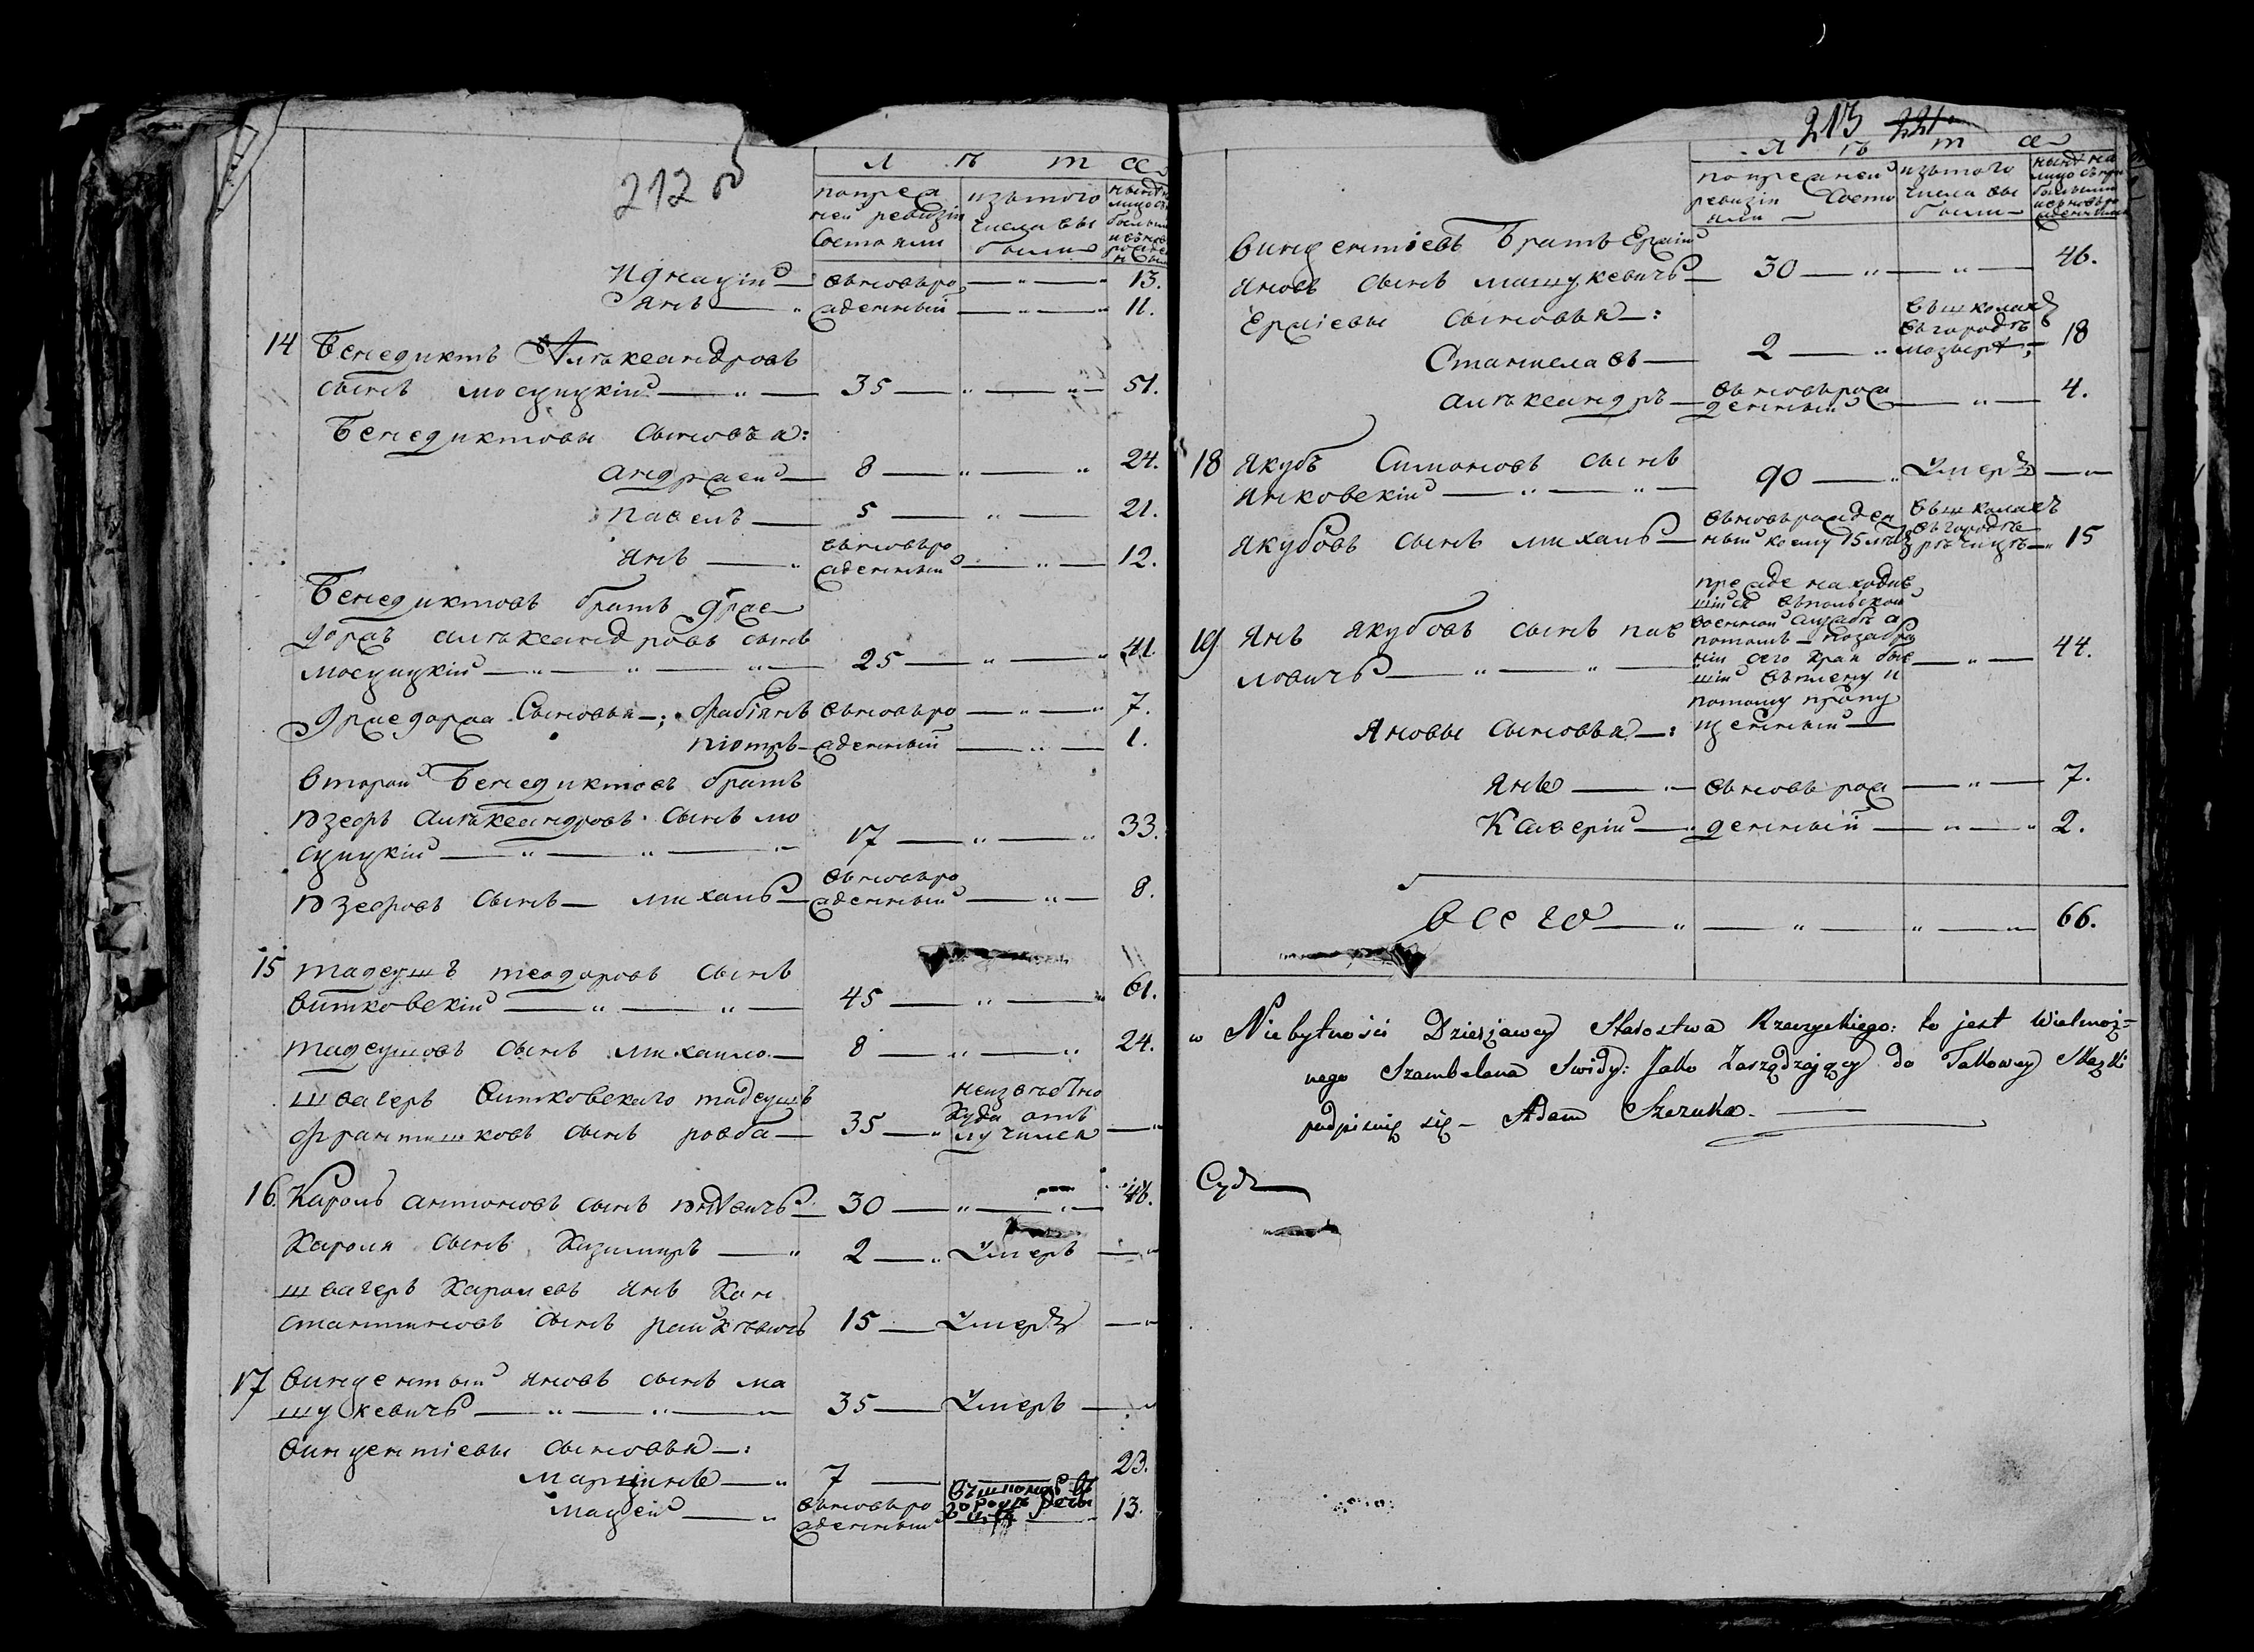 212
Л ѣ т а
попреж
ней ревизіи
Состояли
изътого
числа вы
были
Игнацій — вьновьро — „ — 13.
Янъ — „ жденный — „ — 11.
14 Бенедиктъ Алѣксандровъ
сынъ мосцицкій — „ — 35 — „ — „ — 51.
Бенедиктовы Сыновья:
андржей — 8 — „ — „ 24.
павелъ — 5 — „ — 21.
янъ — „ вьновьро
жденный — „ — 12.
Бенедиктовъ братъ
алѣксандровъ сынъ
мосцицкій — „ — „ — „ — 25 — „ — „ 41.
Сыновья —; фабіянъ вьновьро — „ — „ 7.
піотръ — жденный — „ — 1.
Второй Бенедиктовъ братъ
юзефъ алѣксандровъ Сынъ мо
сцицкій — „ — „ — „ 17 — „ — „ 33.
юзефовъ сынъ — михалъ — вьновьро
жденный — „ — 8.
15 тадеушъ теодоровъ сынъ
витковскій — „ — „ — 45 — „ — „ 61.
тадеушовъ сынъ михайло — 8 — „ — „ 24.
швагеръ витковскаго тадеушъ
францишковъ сынъ — 35 — „ неизвѣстно
куда отъ
лучился — „
16. Кароль антоновъ сынъ — 30 — „ — „ — 46.
Кароля сынъ Казимиръ — „ 2 — „ Умеръ — „
швагеръ Каролевъ янъ Кон
стантиновъ сынъ 15 — Умеръ — „
17 винцентый яновъ сынъ ма
шукевичъ — „ — „ — „ 35 — Умеръ — „
винцентіевы сыновья —:
марцинъ — „ 7 — 23.
мацей — „ вьновьро
жденный 13.
213 221
Л ѣ т а
попрежней
ревизіи Состо
яли —
изътого
числа вы
были —
винцентіевъ братъ
яновъ сынъ машукевичъ — 30 — „ — „ — 46.
сыновья —:
Станиславъ — 2 — „ въшколахъ
въгородѣ
мозырѣ; — 18
алѣксандръ — вьновьрож
денный — „ — 4.
18 якубъ Симоновъ сынъ
янковскій — „ — „ — 90 — „ Умеръ — „
якубовъ сынъ михалъ — вьновьрожден
ный коему 15 лѣтъ въшколахъ
въгородѣ
рѣчицѣ — „ 15
19 янъ якубовъ сынъ пав
ловичъ — „ — „ — прежде находив
шійся впольской
военной службѣ а
потомъ — позабра
ніи сего края быв
шій
потому пропу
щенный — — „ — 44.
Яновы сыновья —:
янъ — „ — вьновь рож — „ — 7.
Каверій — „ денный — „ — „ 2.
всего — „ — „ — „ — „ 66.
w Niebytności Dzierżawcy Starostwa Rzeczyckiego: to jest Wielmoż=
nego Szambelana Swidy: Jako Zarządzający do Takowey Skazki
podpisuię się — Adam Szczuka. —